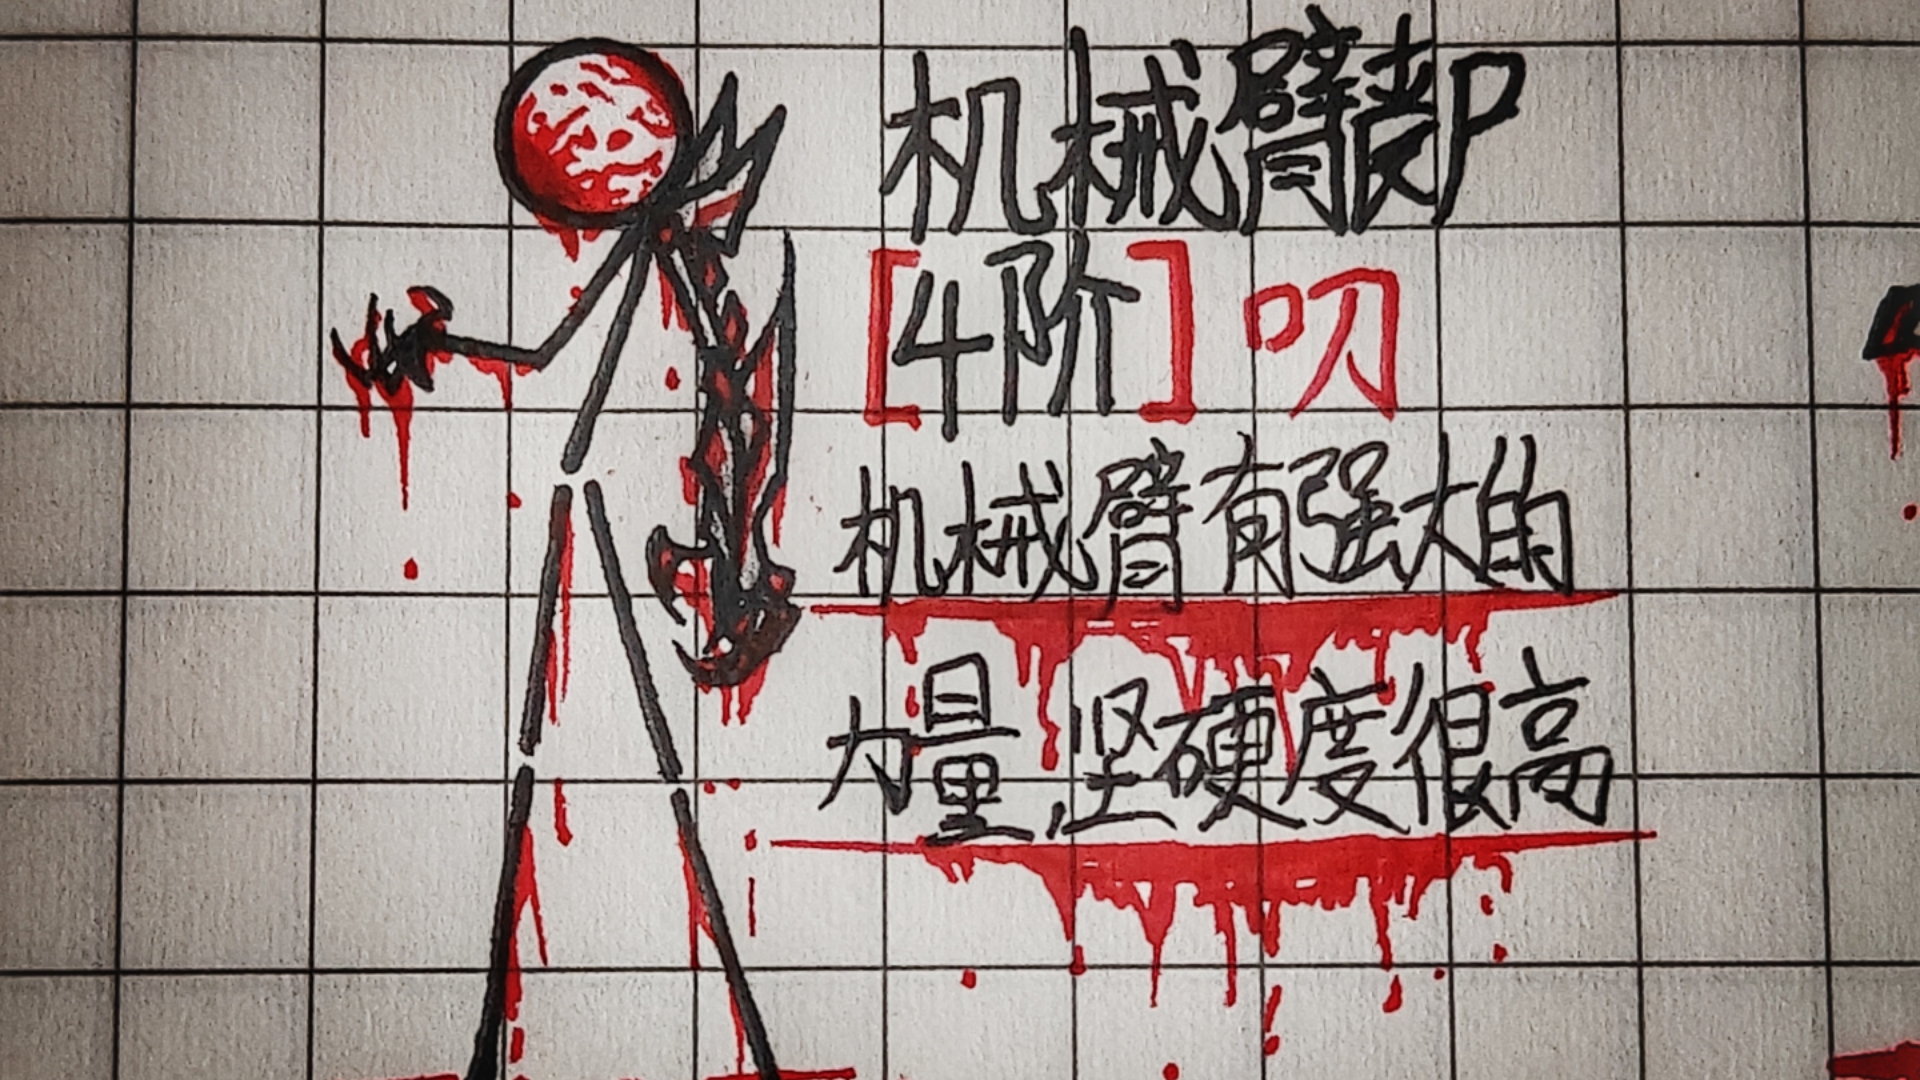 机械臂丧尸
[4阶] 叨
机械臂有强大的
力量,坚硬度很高